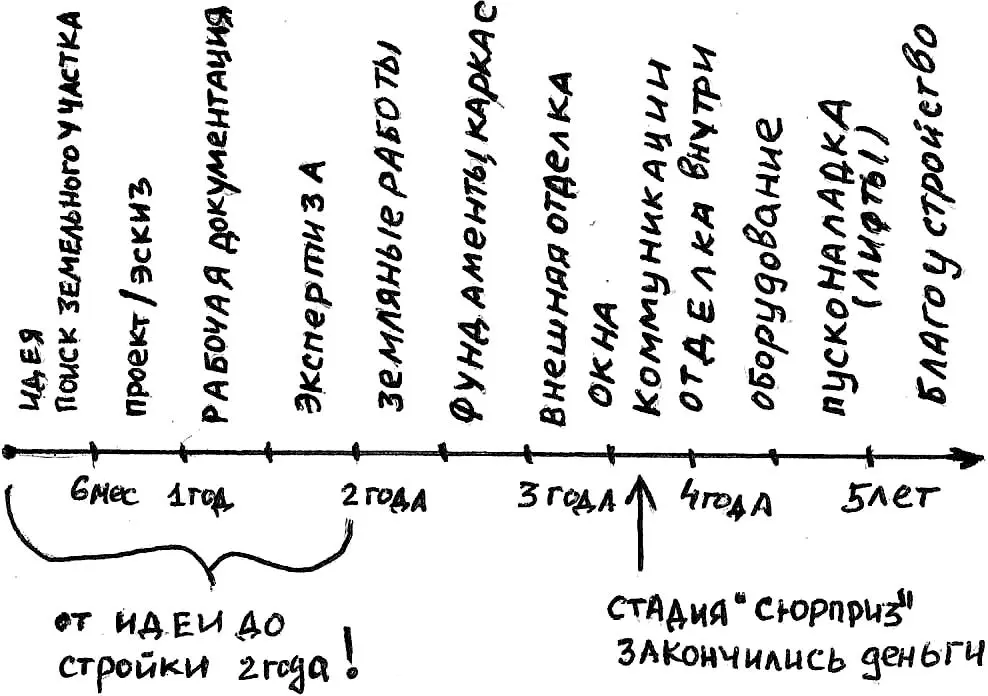 ИДЕЯ
ПОИСК ЗЕМЕЛЬНОГО УЧАСТКА
ПРОЕКТ/ЭСКИЗ
РАБОЧАЯ ДОКУМЕНТАЦИЯ
ЭКСПЕРТИЗА
ЗЕМЛЯНЫЕ РАБОТЫ
ФУНДАМЕНТЫ, КАРКАС
ВНЕШНАЯ ОТДЕЛКА
ОКНА
КОММУНИКАЦИИ
ОТДЕЛКА ВНУТРИ
ОБОРУДОВАНИЕ
ПУСКОНАЛАДКА
(ЛИФТЫ)
БЛАГОУСТРОЙСТВО
6 мес 1 год 2 года 3 года 4 года 5 лет
от ИДЕИ ДО
стройки 2 года!
СТАДИЯ "СЮРПРИЗ"
ЗАКОНЧИЛИСЬ деньги